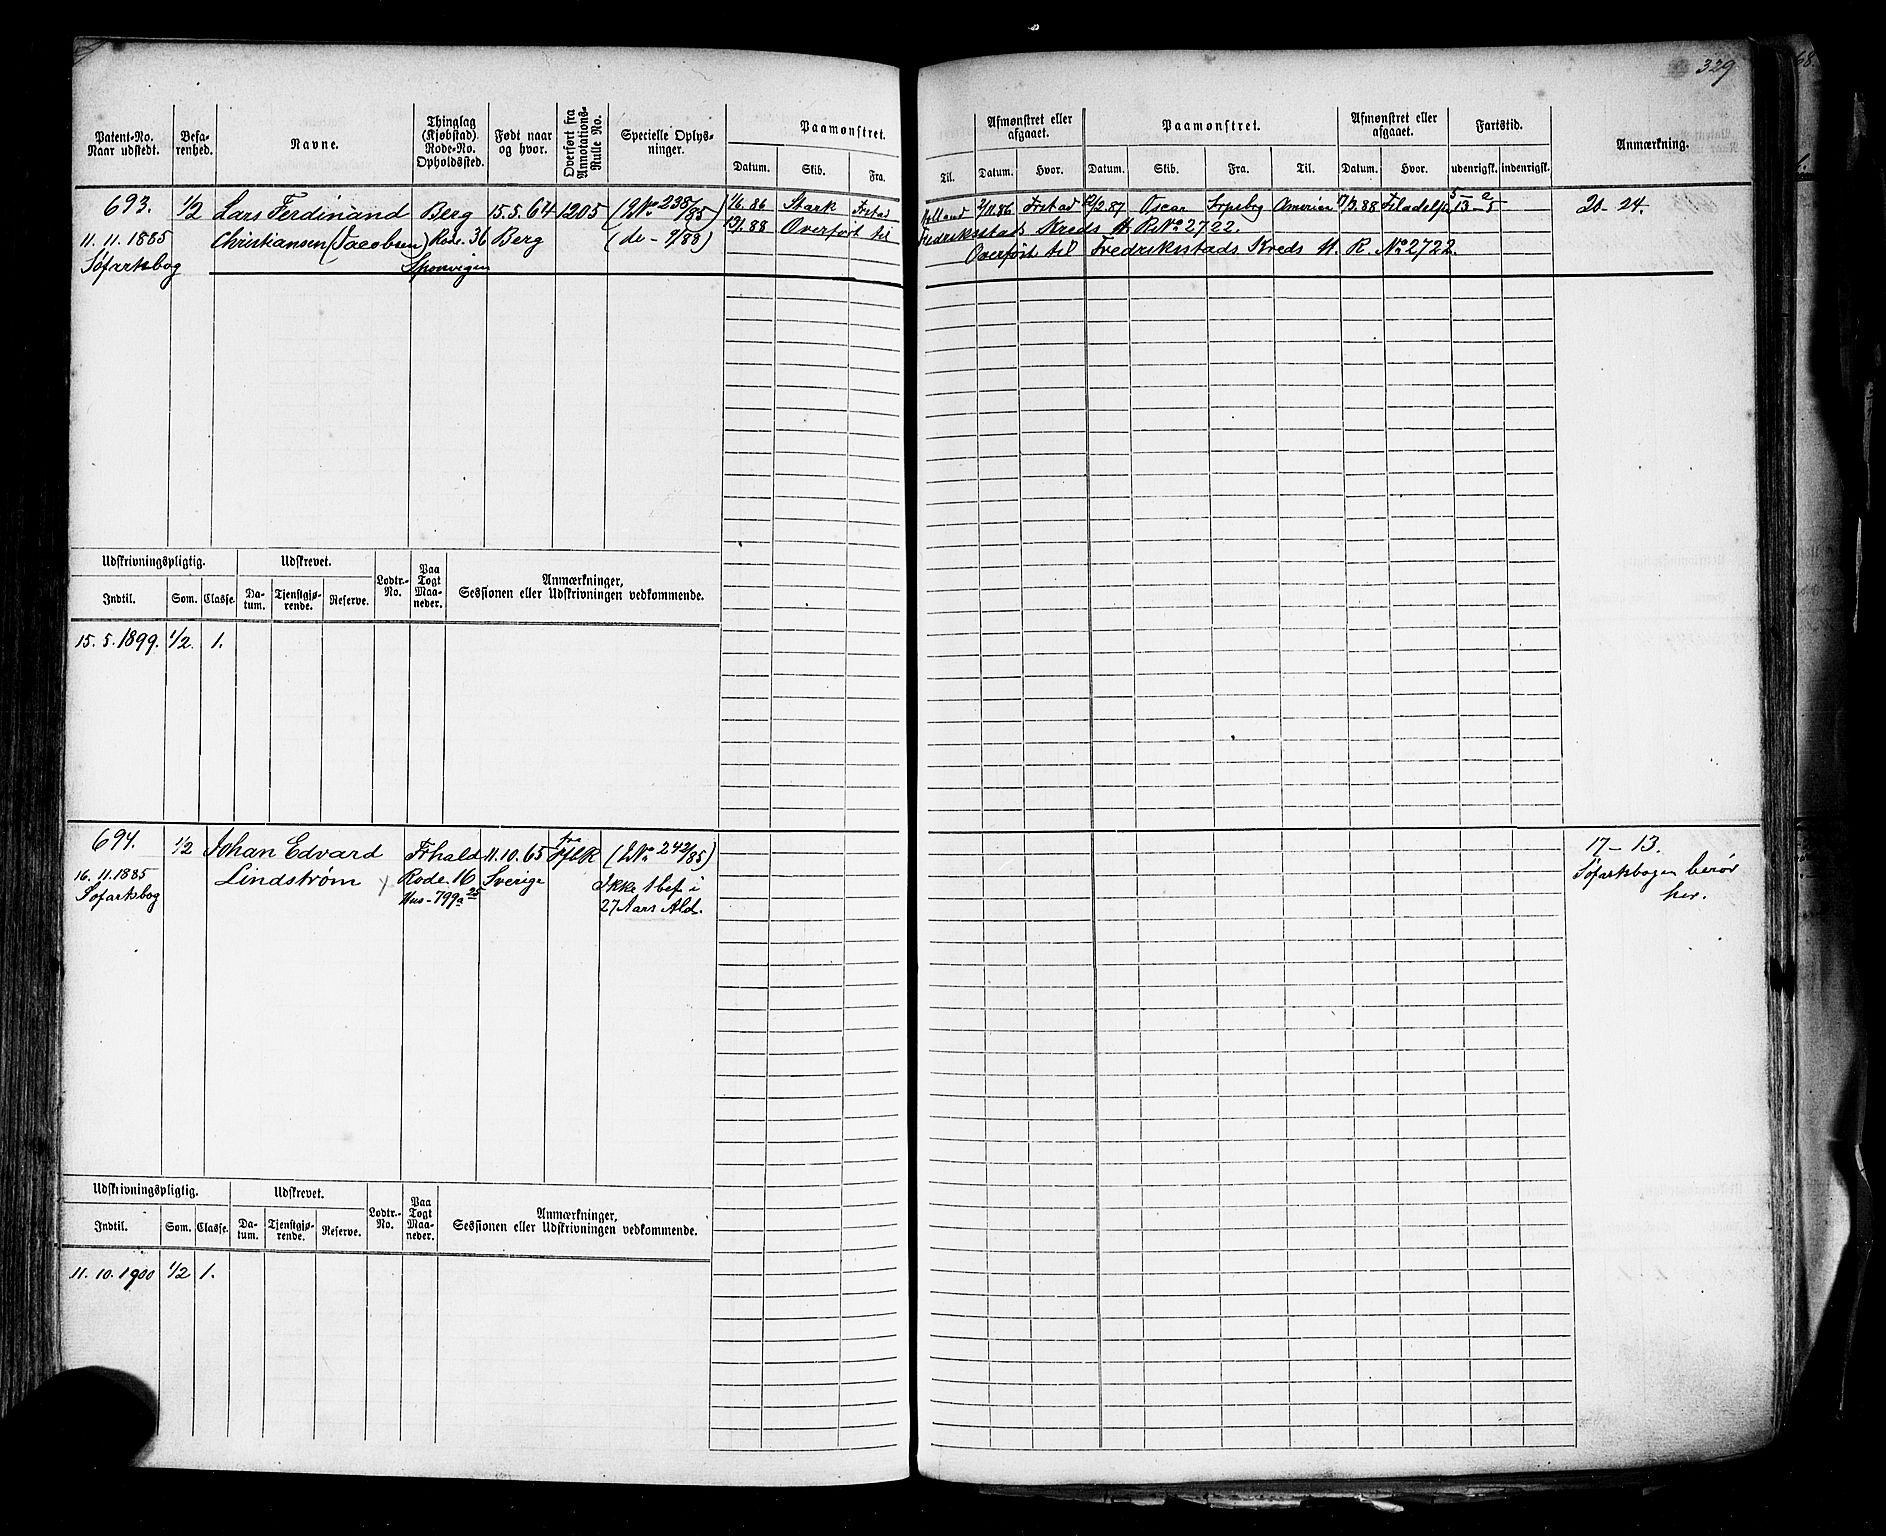 329
Patent-No. Naar udstedt.
Befarenhed.
Navne.
Thinglag (Kjøbstad). Rode-No. Opholdssted.
Født naar og hvor.
Overført fra Annotations-Rulle No.
Specielle Oplysninger.
Paamønstret.
Datum. Skib. Fra.
Til.
Afmønstret eller afgaaet.
Datum. Hvor.
Paamønstret.
Datum. Skib. Fra. Til.
Afmønstret eller afgaaet.
Datum. Hvor.
Fartstid.
udenrigsk. indenrigsk.
Anmærkning.
693. 1/2 Lars Ferdinand Berg 15.5.64 1205 (No 235/85) 1/6.86 Stark Frstad
11.11.1885 Christiansen (Jacobsen) Rode. 36 Berg (do - 9/88) 88 Overført til
Søfartsbog Sponvigen
Holland 2/11.86 Frstad 12/2.87 Oscar Amerika 88 Filadelfia 20-24.
Fredriksstads Kreds H. R. No 2722.
Overført til Fredriksstads Kreds H. R. No 2722.
Udskrivningspligtig.
Udskrevet.
Lodtr.-No.
Paa Togt Maaneder.
Anmærkninger, Sessionen eller Udskrivningen vedkommende.
Indtil. Som. Classe. Datum. Tjenstgjørende. Reserve.
15.5.1899. 1/2. 1.
694. 1/2 Johan Edvard Frhald 11.10.65 fra (No 242/85)
16.11.1885 Lindstrøm Rode. 16 Sverige Ikke 1 bef. i
Søfartsbog Hus-799a 27 Aars Ald.
17-13.
Søfartsbogen beror
her.
Udskrivningspligtig.
Udskrevet.
Lodtr.-No.
Paa Togt Maaneder.
Anmærkninger, Sessionen eller Udskrivningen vedkommende.
Indtil. Som. Classe. Datum. Tjenstgjørende. Reserve.
11.10.1900 1/2 1.